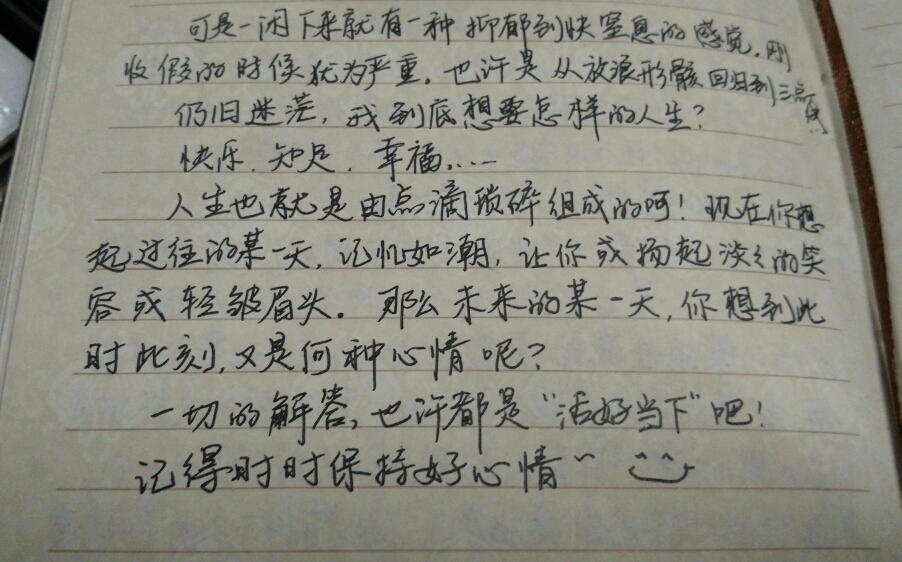 可是一闲下来就有一种抑郁到快窒息的感觉,刚
收假的时候犹为严重,也许是从放浪形骸回归到三点一
仍旧迷茫,我到底想要怎样的人生?
快乐、知足、幸福……
人生也就是由点滴琐碎组成的呵!现在你想
起过往的某一天,记忆如潮,让你或扬起淡々的笑
容或轻皱眉头。那么未来的某一天,你想到此
时此刻,又是何种心情呢?
一切的解答,也许都是“活好当下”吧!
记得时时保持好心情~